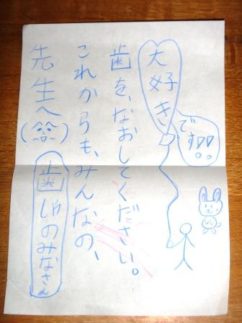 先生へ
歯しゃのみなさん
これからも、みんなの、
歯を、なおしてください。
大好き
です